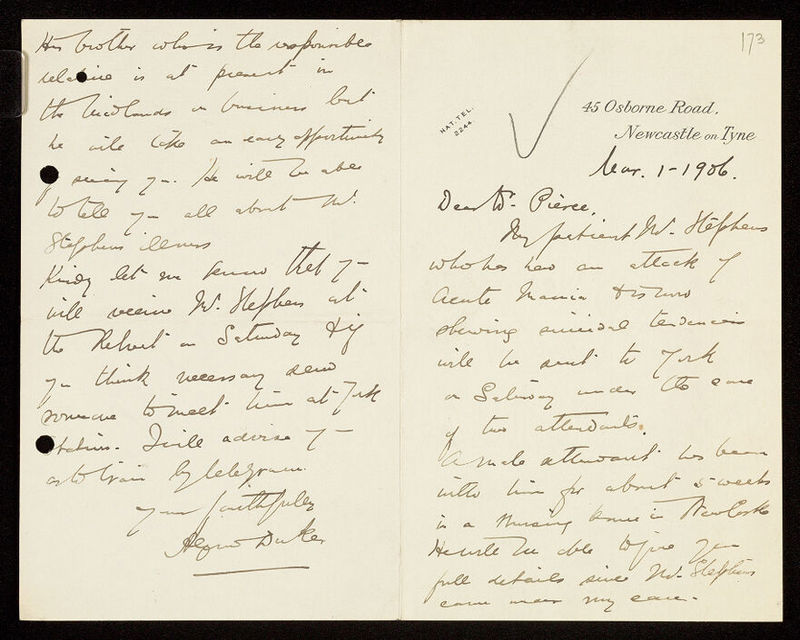 173
NAT. TEL.
2244.
45 Osborne Road,
Newcastle on Tyne
Mar. 1 - 1906.
Dear Dr. Pierce,
My patient Mr. Stephens
who has had an attack of
Acute Mania & is now
shewing suicidal tendencies
will be sent to York
on Saturday under the care
of two attendants.
A male attendant has been
with him for about 5 weeks
in a Nursing home in Newcastle
He will be able to give you
full details since Mr. Stephens
came under my care.
His brother who is the responsible
relative is at present in
the Midlands on business but
he will take an early opportunity
of seeing you. He will be able
to tell you all about Mr.
Stephens illness
Kindly let me know that you
will receive Mr. Stephens at
the Retreat on Saturday & if
you think necessary send
someone to meet him at York
station. I will advise you
as to train by telegram.
Your faithfully